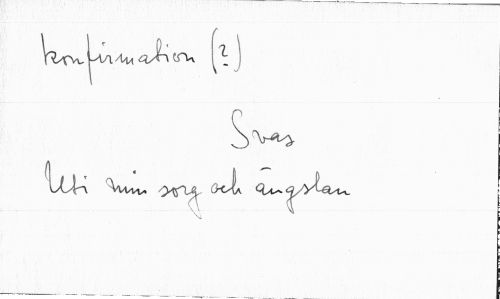 konfirmation (?)
Svas
Uti min sorg och ängslan